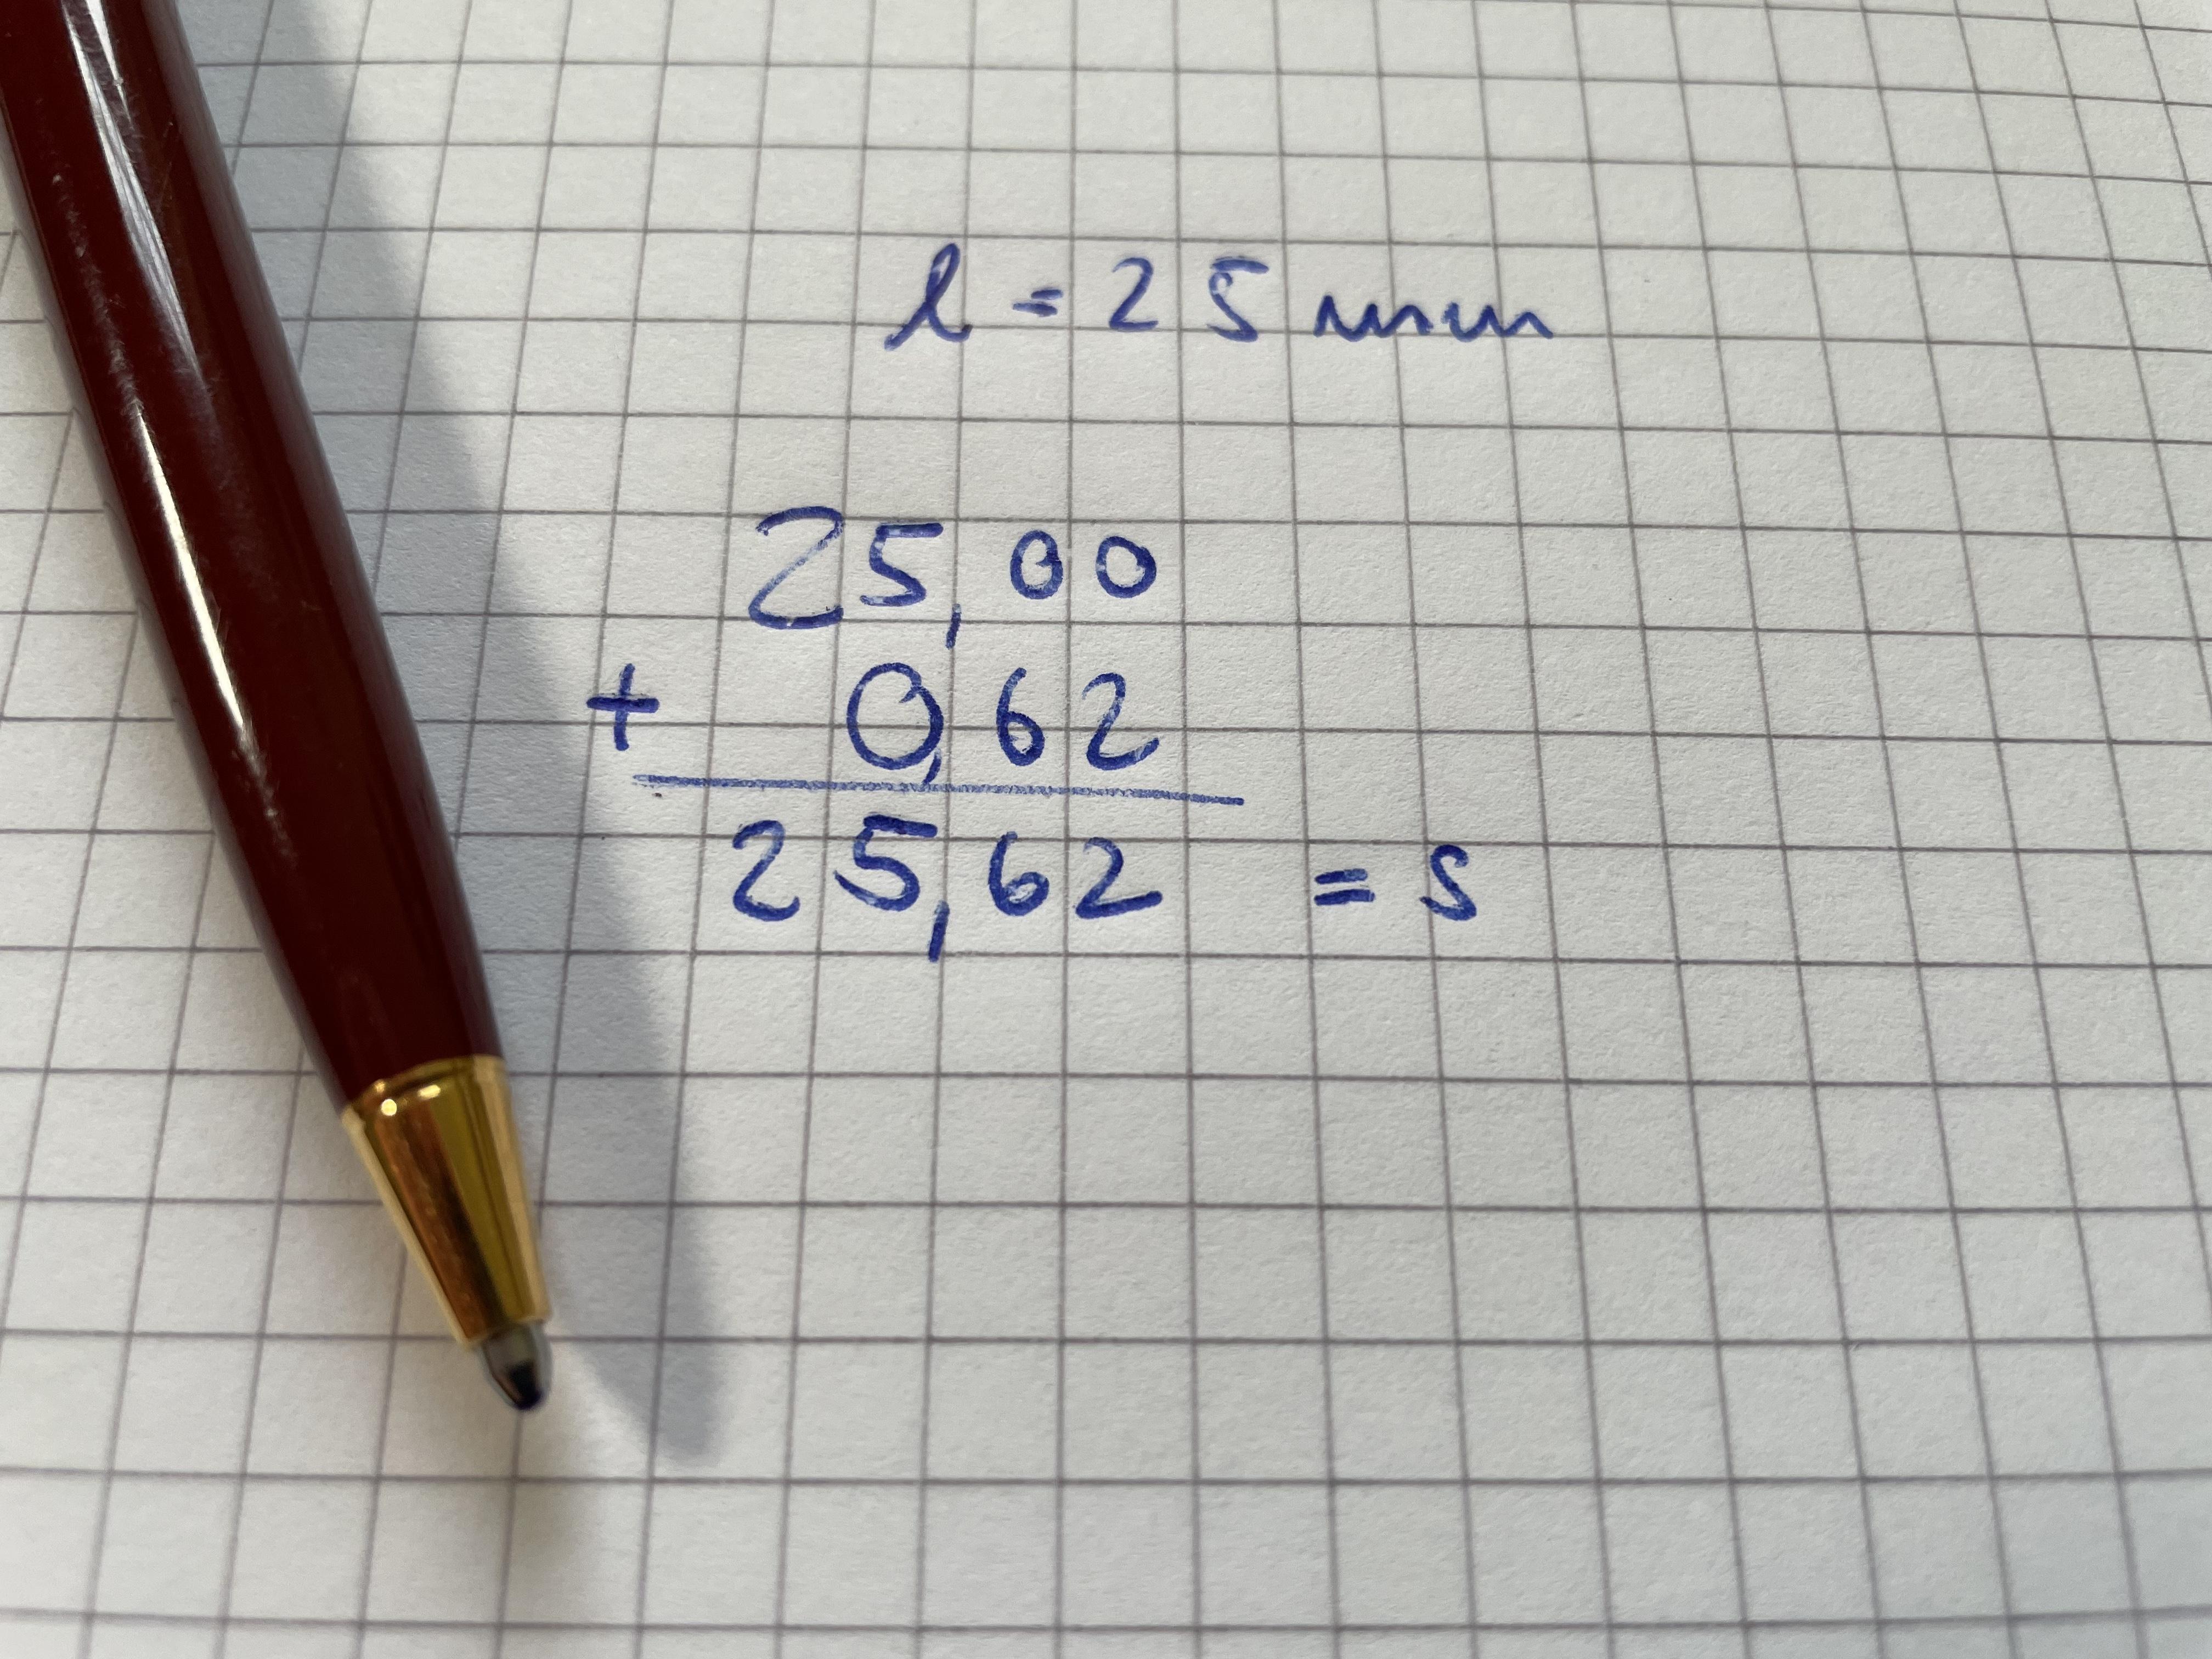 l = 25 mm
25,00
+ 0,62
25,62 = s